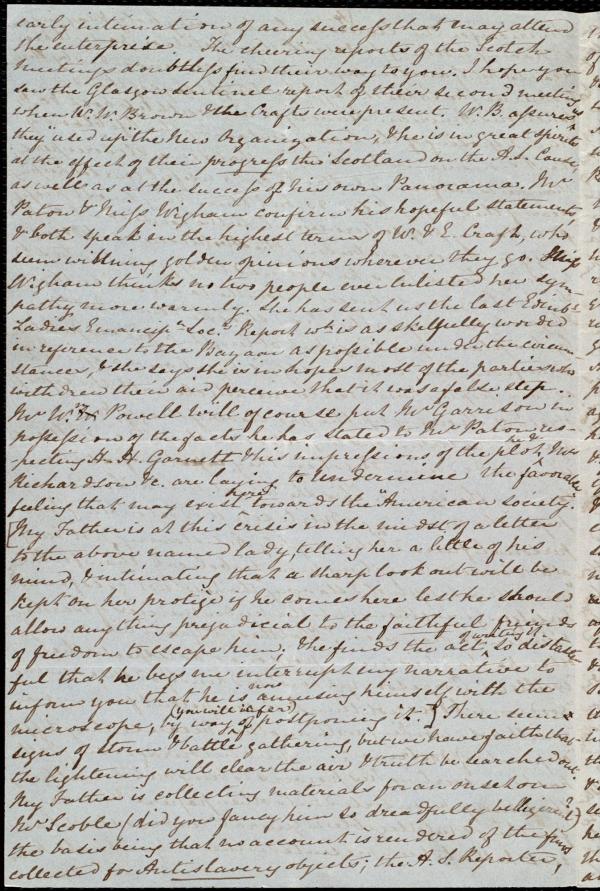 early intimation of any success that may attend
the enterprise. The cheering reports of the Scotch
meetings doubtless find their way to you. I hope you
saw the Glasgow sentinel report of their second meeting
when W. W. Brown & the Crafts were present. W. B. assures
they "used up" the New Organization, & he is in great spirits
at the effect of their progress thro' Scotland on the A. S. Cause
as well as at the success of his own Panorama. Mr
Paton & Miss Wigham confirm his hopeful statements
& both speak in the highest terms of W. & E. Craft, who
seem winning golden opinions wherever they go. Miss
Wigham thinks no two people ever enlisted her sym-
pathy more warmly. She has sent us the last Edinbr
Ladies Emancipn Socy Report wh is as skilfully worded
in reference to the Bazaar as possible under the circum
stances, & she says she is in hopes most of the parties who
withdrew their aid perceive that it was a false step.
Mr Wm Powell will of course put Mr Garrison in
possession of the facts he has stated to Mr Paton res-
pecting H. H. Garnett & his impressions of the plot he & Mrs
Richardson &c. are laying to undermine the favorable
feeling that may exist here towards the "American society.
[My Father is at this crisis in the midst of a letter
to the above named lady, telling her a little of his
mind, & intimating that a sharp look out will be
kept on her protigé if he comes here lest he should
allow anything prejudicial to the faithful friends
of freedom to escape him; & he finds the act of writing it so distaste
ful that he begs me interrupt my narrative to
inform you that he is now amusing himself with the
microscope, (you will infer) by way of postponing it.] There seem
signs of storm & battle gathering, but we have faith that
the lightening will clear the air & truth be searched out
My Father is collecting materials for an onset on
Mr Scoble (did you fancy him so dreadfully belligerent?)
the basis being that no account is rendered of the funds
collected for Antislavery objects; the A. S. Reporter,